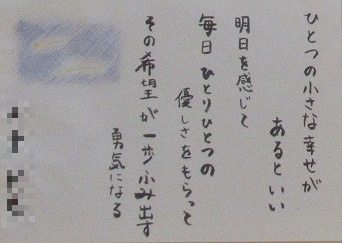 ひとつの小さな幸せが
あるといい
明日を感じて
毎日ひとりひとつの
優しさをもらって
その希望が一歩ふみ出す
勇気になる